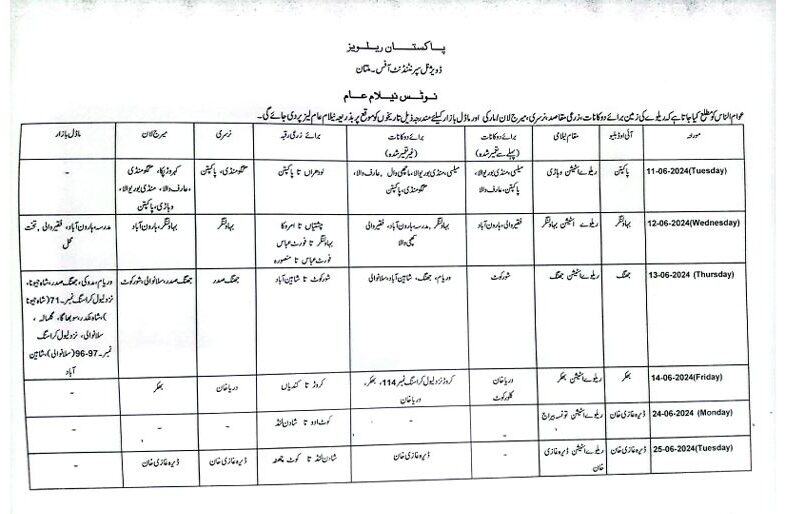 پاکستان ریلویز
ڈویژنل سپرنٹنڈنٹ آفس۔ ملتان
نوٹس نیلام عام
عوام الناس کو مطلع کیا جاتا ہے کہ ریلوے کی زمین برائے دوکانات، زرعی مقاصد، نرسری، میرج لان امارکی اور ماڈل بازار کیلئے مندرجہ ذیل تاریخوں کو موقع پر بذریعہ نیلام عام لیز پر دی جائے گی۔
مورخہ آئی او ڈبلیو مقام نیلامی برائے دوکانات برائے دوکانات برائے زرعی رقبہ نرسری میرج لان ماڈل بازار
(پہلے سے تعمیر شدہ) (غیر تعمیر شدہ)
11-06-2024(Tuesday) پاکپتن ریلوے اسٹیشن وہاڑی میلسی، منڈی بوریوالا، میلسی، منڈی بوریوالا، ماچھی وال، عارف والا، لودھراں تا پاکپتن گگو منڈی، پاکپتن کہروڑپکا، گگو منڈی -
پاکپتن، عارف والا گگو منڈی، پاکپتن ، عارف والا، منڈی بوریوالا،
وہاڑی، پاکپتن
12-06-2024(Wednesday) بہاولنگر ریلوے اسٹیشن بہاولنگر فقیر والی، ہارون آباد بہاولنگر، مدرسہ، ہارون آباد، فقیر والی چشتیاں تا امروکا بہاولنگر بہاولنگر، ہارون آباد مدرسہ، ہارون آباد، فقیر والی، تخت
کھچی والا بہاولنگر تا فورٹ عباس محل
فورٹ عباس تا منصورہ
13-06-2024 (Thursday) جھنگ ریلوے اسٹیشن جھنگ شورکوٹ وریام، جھنگ، شاہین آباد، سلانوالی شورکوٹ تا شاہین آباد جھنگ صدر جھنگ صدر، سلانوالی، شورکوٹ وریام، مدوکی، جھنگ صدر، شاہ جیونا،
نزد لیول کراسنگ نمبر۔71(شاہ جیونا
)، شاہ نکدر، سوبھاگا، ،
سلانوالی، نزد لیول کراسنگ
نمبر۔97-96(سلانوالی)، شاہین
آباد
14-06-2024(Friday) بھکر ریلوے اسٹیشن بھکر دریا خان کروڑ نزد لیول کراسنگ نمبر 114، بھکر، کروڑ تا کندیاں دریا خان بھکر -
کلورکوٹ دریا خان
24-06-2024 (Monday) ڈیرہ غازی خان ریلوے اسٹیشن تونسہ بیراج - - کوٹ ادو تا شادن لنڈ - - -
25-06-2024(Tuesday) ڈیرہ غازی خان ریلوے اسٹیشن ڈیرہ غازی - ڈیرہ غازی خان شادن لنڈ تا کوٹ چھٹہ ڈیرہ غازی خان ڈیرہ غازی خان -
خان